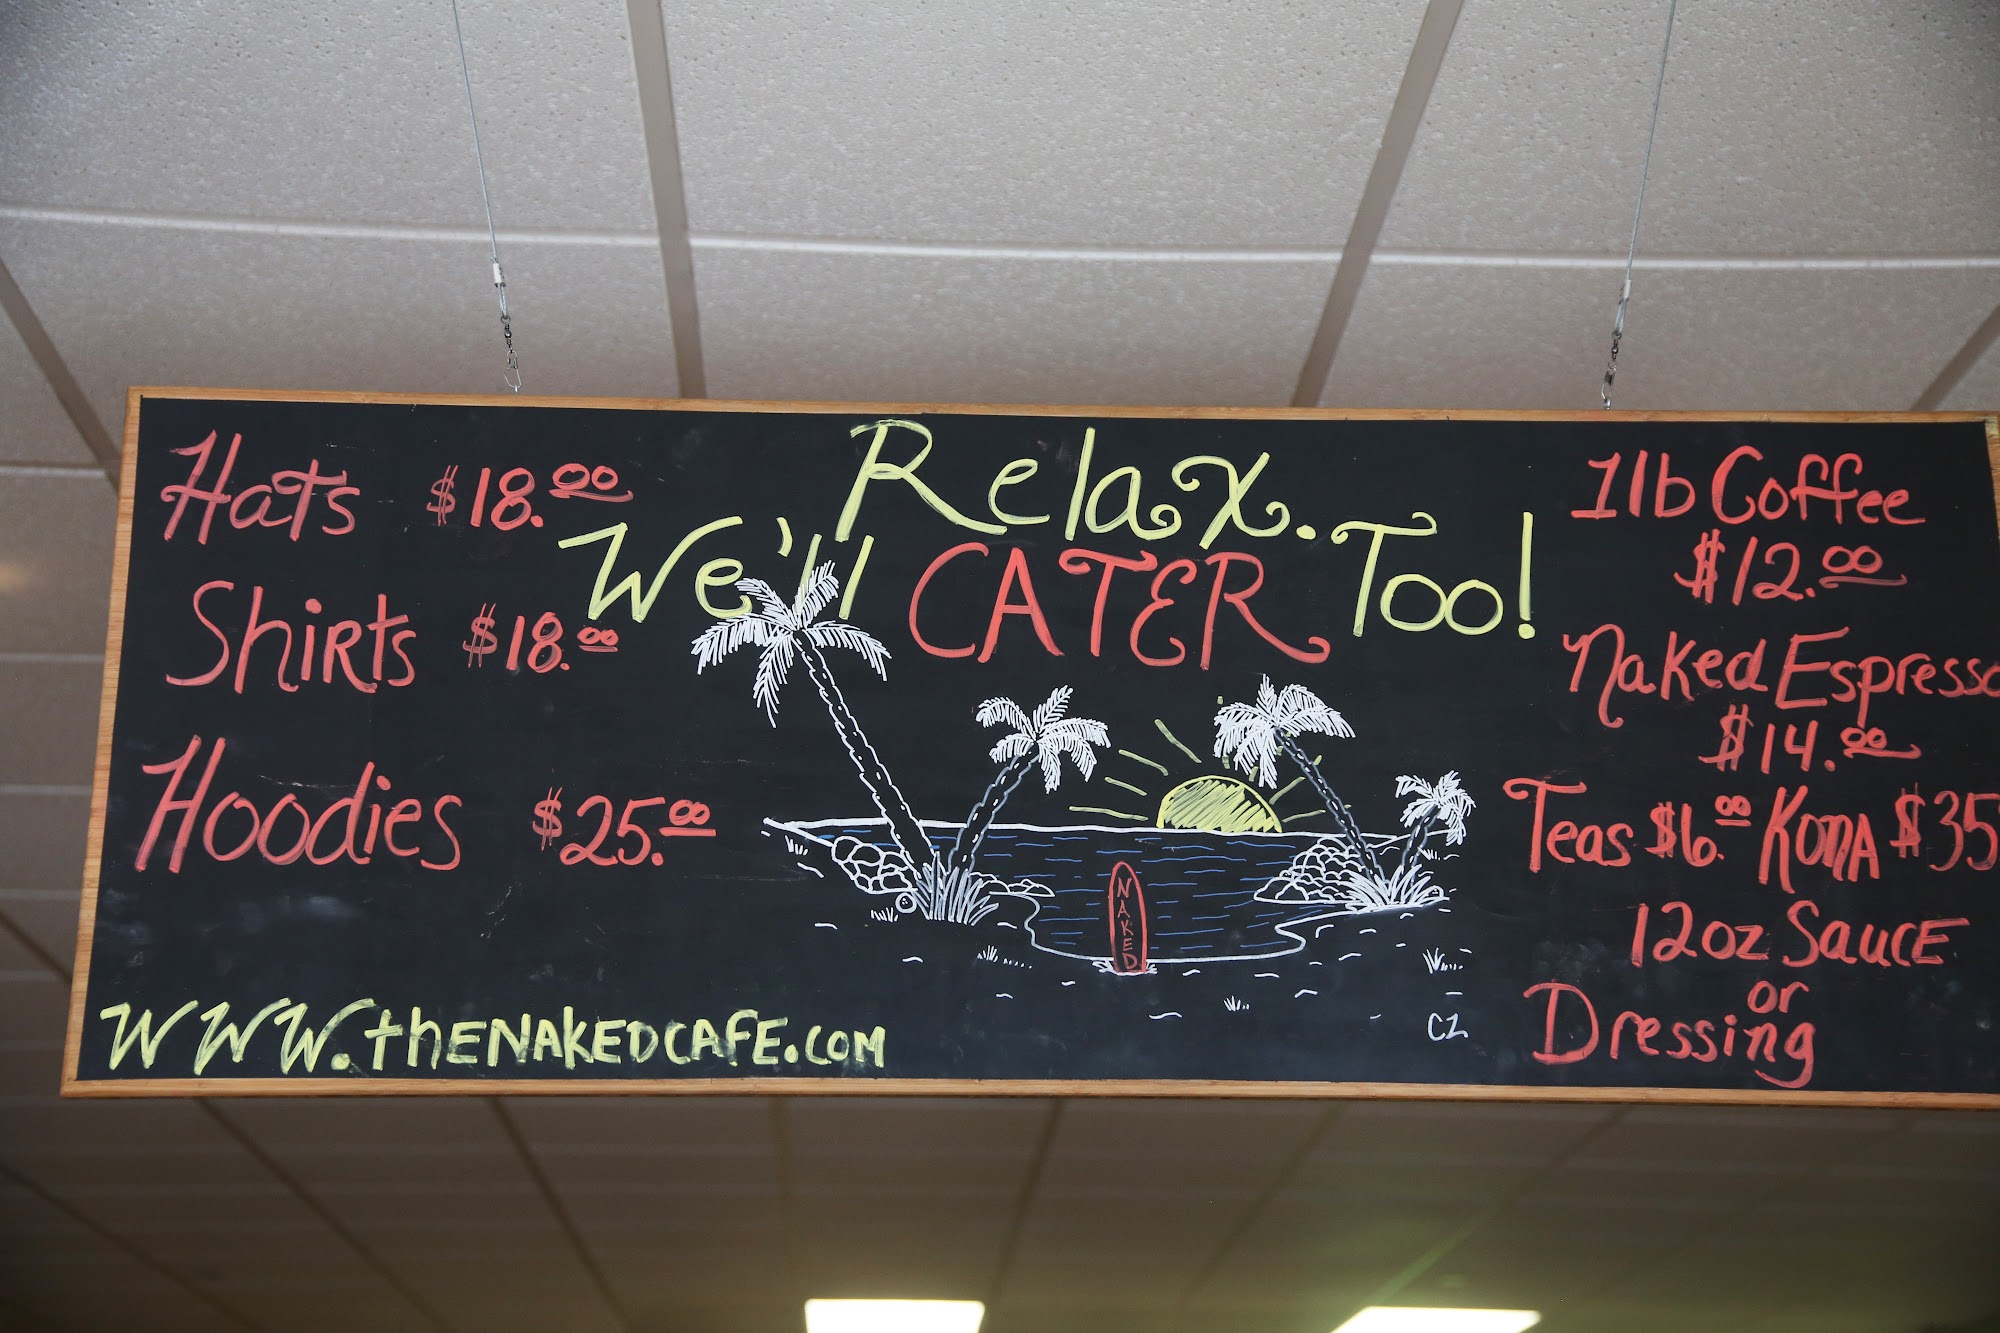 Hats $18.00
Shirts $18.00
Hoodies $25.00
www.thENAKEDCAFE.com
Relax.
We'll CATER Too!
NAKED
CZ
1lb Coffee
$12.00
Naked Espresso
$14.00
Teas $6.00 KONA $35
12oz SaucE
or
Dressing